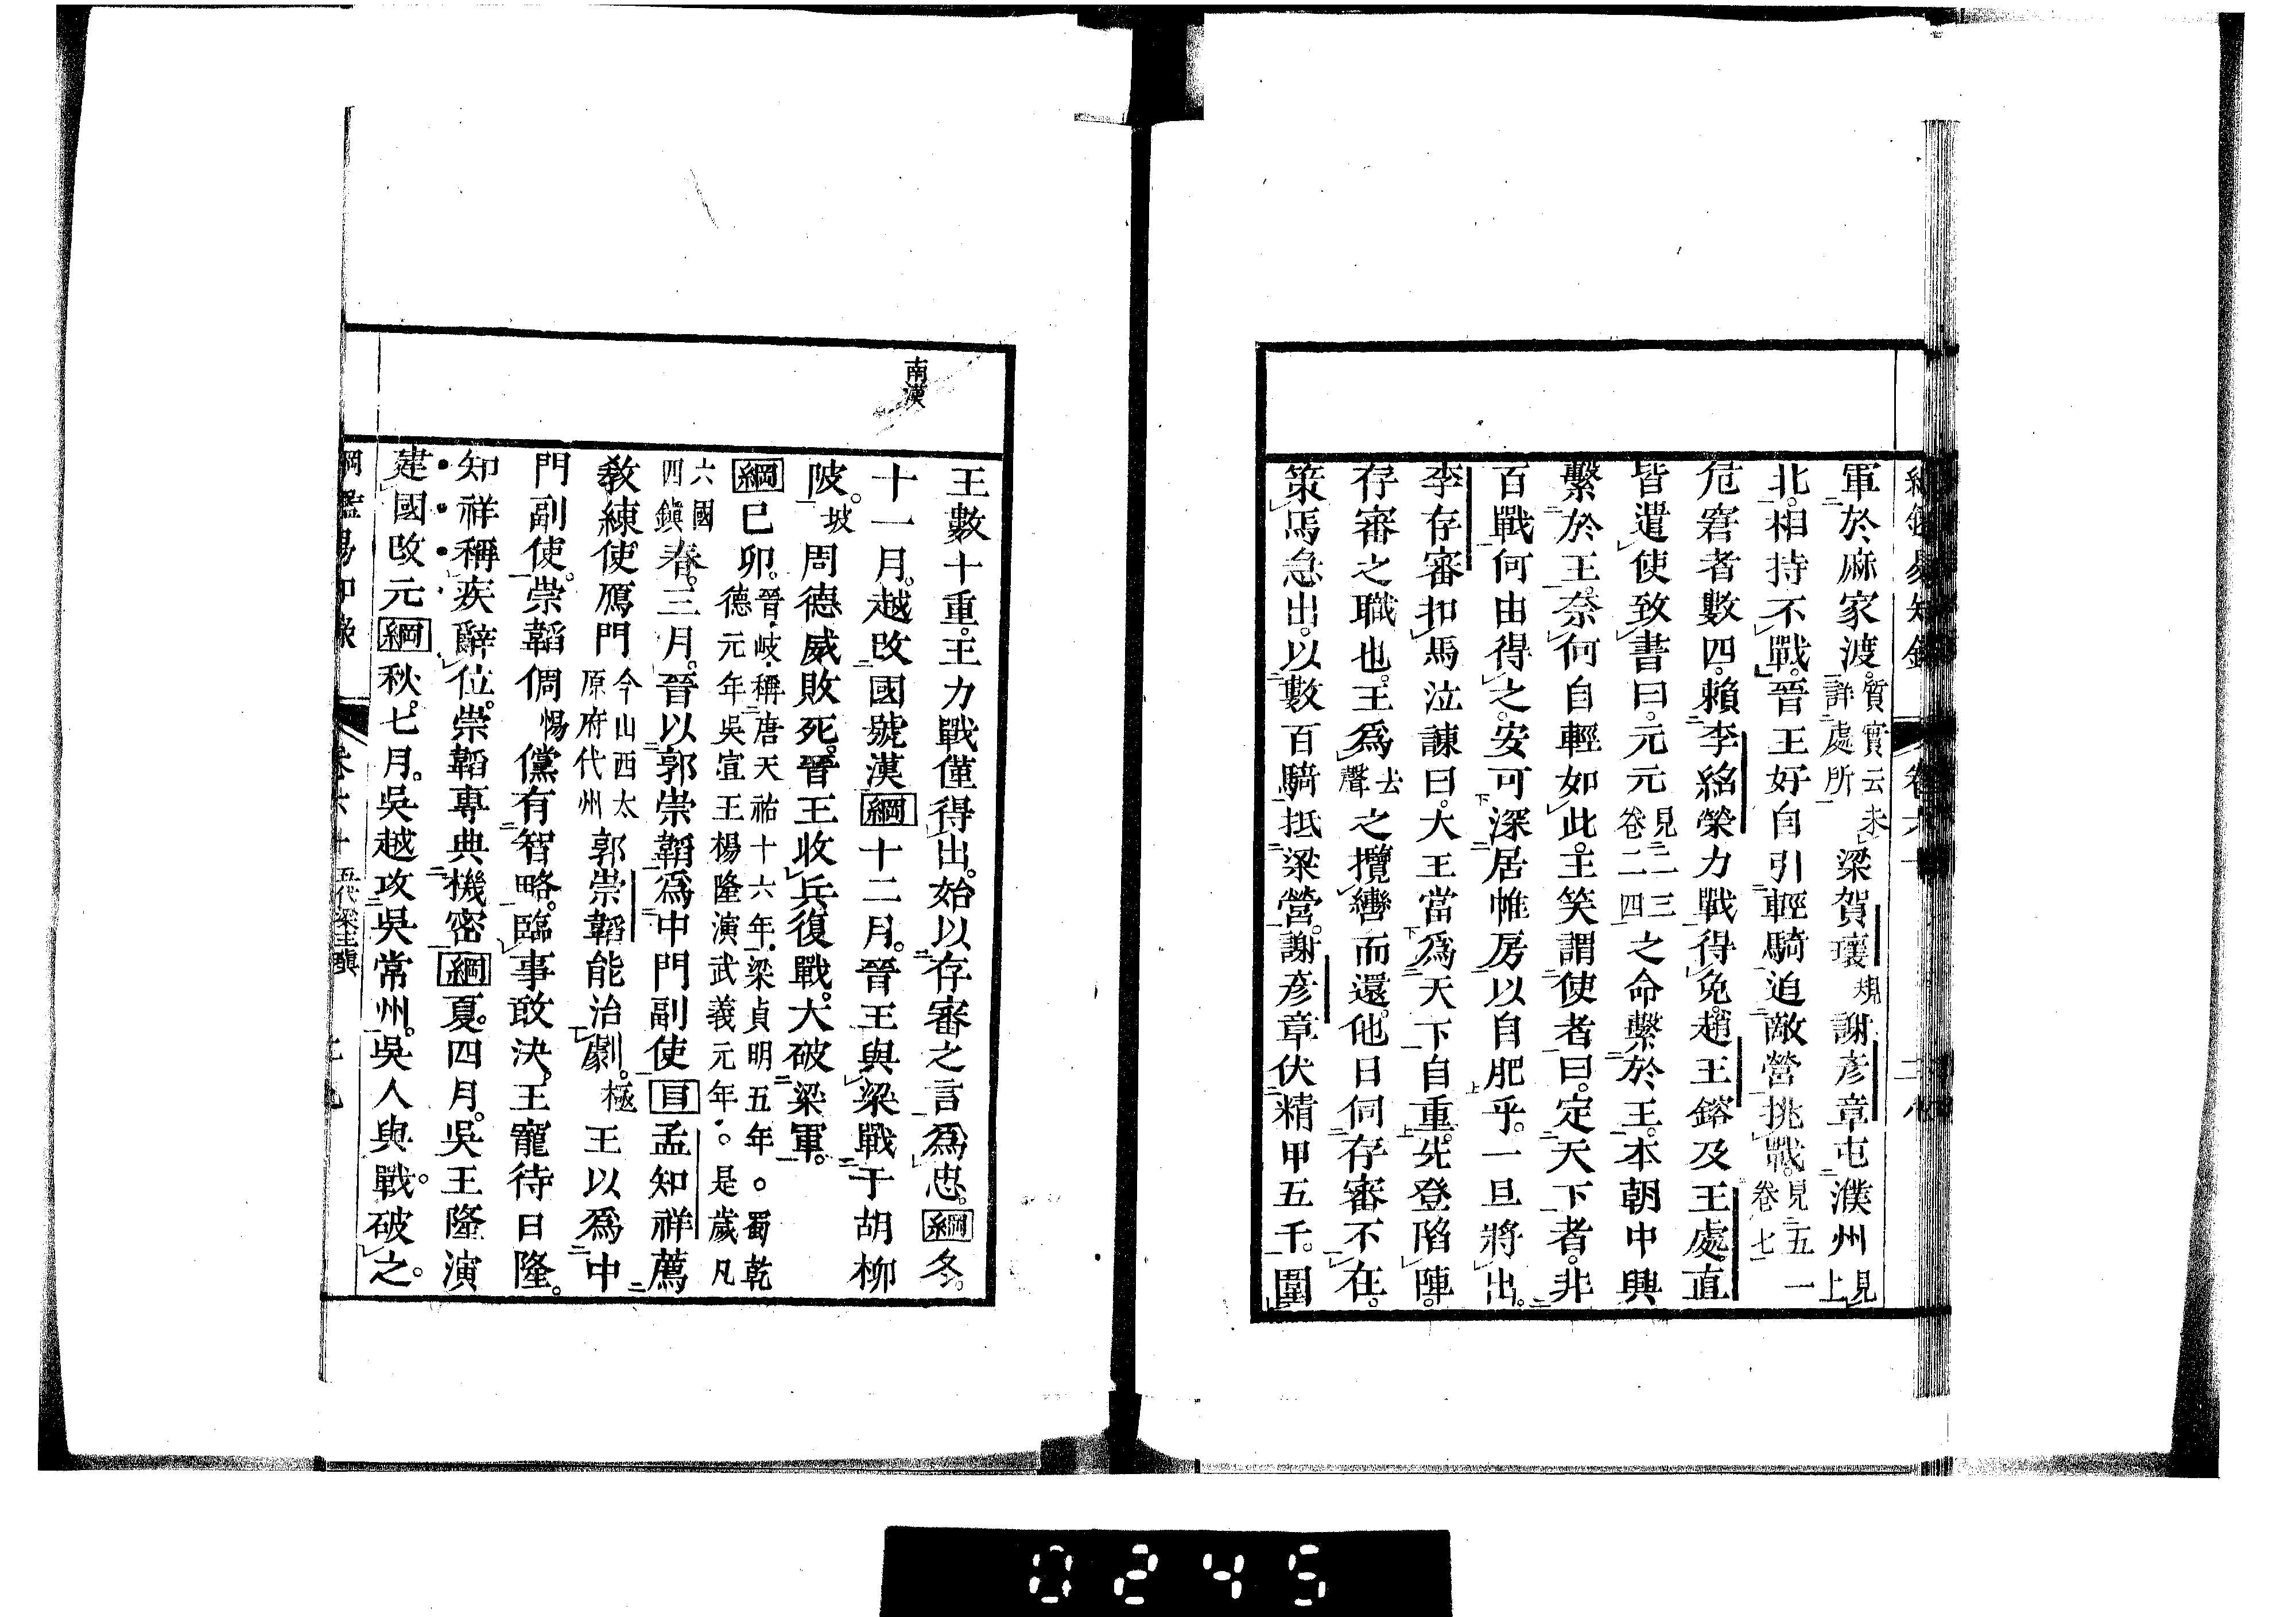 軍於麻家渡。質實云未詳處所梁賀瓌規謝彥章屯濮州見上
北。相持不戰。晉王好自引輕騎迫敵營挑戰。見五一卷七
危窘者數四。賴李紹榮力戰得免。趙王鎔及王處直
皆遣使致書曰。元元見二三卷二四之命繫於王。本朝中興
繫於王。奈何自輕如此。王笑謂使者曰。定天下者。非
百戰何由得之。安可深居帷房以自肥乎。一旦將出。
李存審扣馬泣諫曰。大王當爲天下自重。先登陷陣。
存審之職也。王爲去聲之攬轡而還。他日伺存審不在。
策馬急出。以數百騎抵梁營。謝彥章伏精甲五千。圍
南漢
王數十重。王力戰僅得出。始以存審之言爲忠。綱冬。
十一月。越改國號漢綱十二月。晉王與梁戰于胡柳
陂。坡周德威敗死。晉王收兵復戰。大破梁軍。
綱己卯。晉岐稱唐天祐十六年。梁貞明五年。蜀乾德元年吳宣王楊隆演武義元年。是歲凡
六國四鎭春。三月。晉以郭崇韜爲中門副使目孟知祥薦
敎練使鴈門今山西太原府代州郭崇韜能治劇。極王以爲中
門副使。崇韜倜惕儻有智略。臨事敢決。王寵待日隆。
知祥稱疾辭位。崇韜專典機密綱夏。四月。吳王隆演
建國改元綱秋。七月。吳越攻吳常州。吳人與戰。破之。
綱鑑易知錄 卷六十 五代梁主瑱
0245